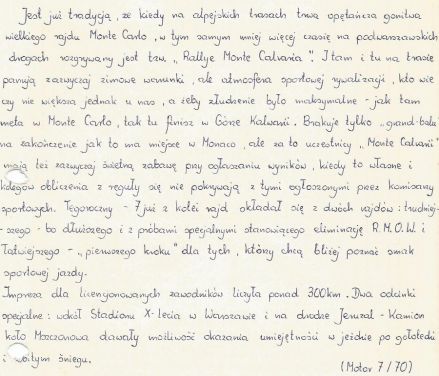 Jest już tradycją, że kiedy na alpejskich trasach trwa opętańcza gonitwa
wielkiego rajdu Monte Carlo, w tym samym mniej więcej czasie na podwarszawskich
drogach rozgrywany jest tzw. „Rallye Monte Calvaria". I tam i tu na trasie
panują zazwyczaj zimowe warunki, ale atmosfera sportowej rywalizacji, kto wie
czy nie większa jednak u nas, a żeby złudzenie było maksymalne - jak tam
meta w Monte Carlo, tak tu finisz w Górze Kalwarii. Brakuje tylko „grand-balu"
na zakończenie jak to ma miejsce w Monaco, ale za to uczestnicy „Monte Calvarii"
mają też zazwyczaj świetną zabawę przy ogłaszaniu wyników, kiedy to własne i
kolegów obliczenia z reguły się nie pokrywają z tymi ogłoszonymi przez komisarzy
sportowych. Tegoroczny - 7 już z kolei rajd składał się z dwóch rajdów: trudniej-
-szego - bo dłuższego i z próbami specjalnymi stanowiącego eliminację R.M.O.W. i
łatwiejszego - „pierwszego kroku" dla tych, którzy chcą bliżej poznać smak
sportowej jazdy.
Impreza dla licencjonowanych zawodników liczyła ponad 300km. Dwa odcinki
specjalne: wokół Stadionu X-lecia w Warszawie i na drodze Jeruzal - Kamion
koło Mszczonowa dawały możliwość okazania umiejętności w jeździe po gołoledzi
i ubitym śniegu.
(Motor 7/70)